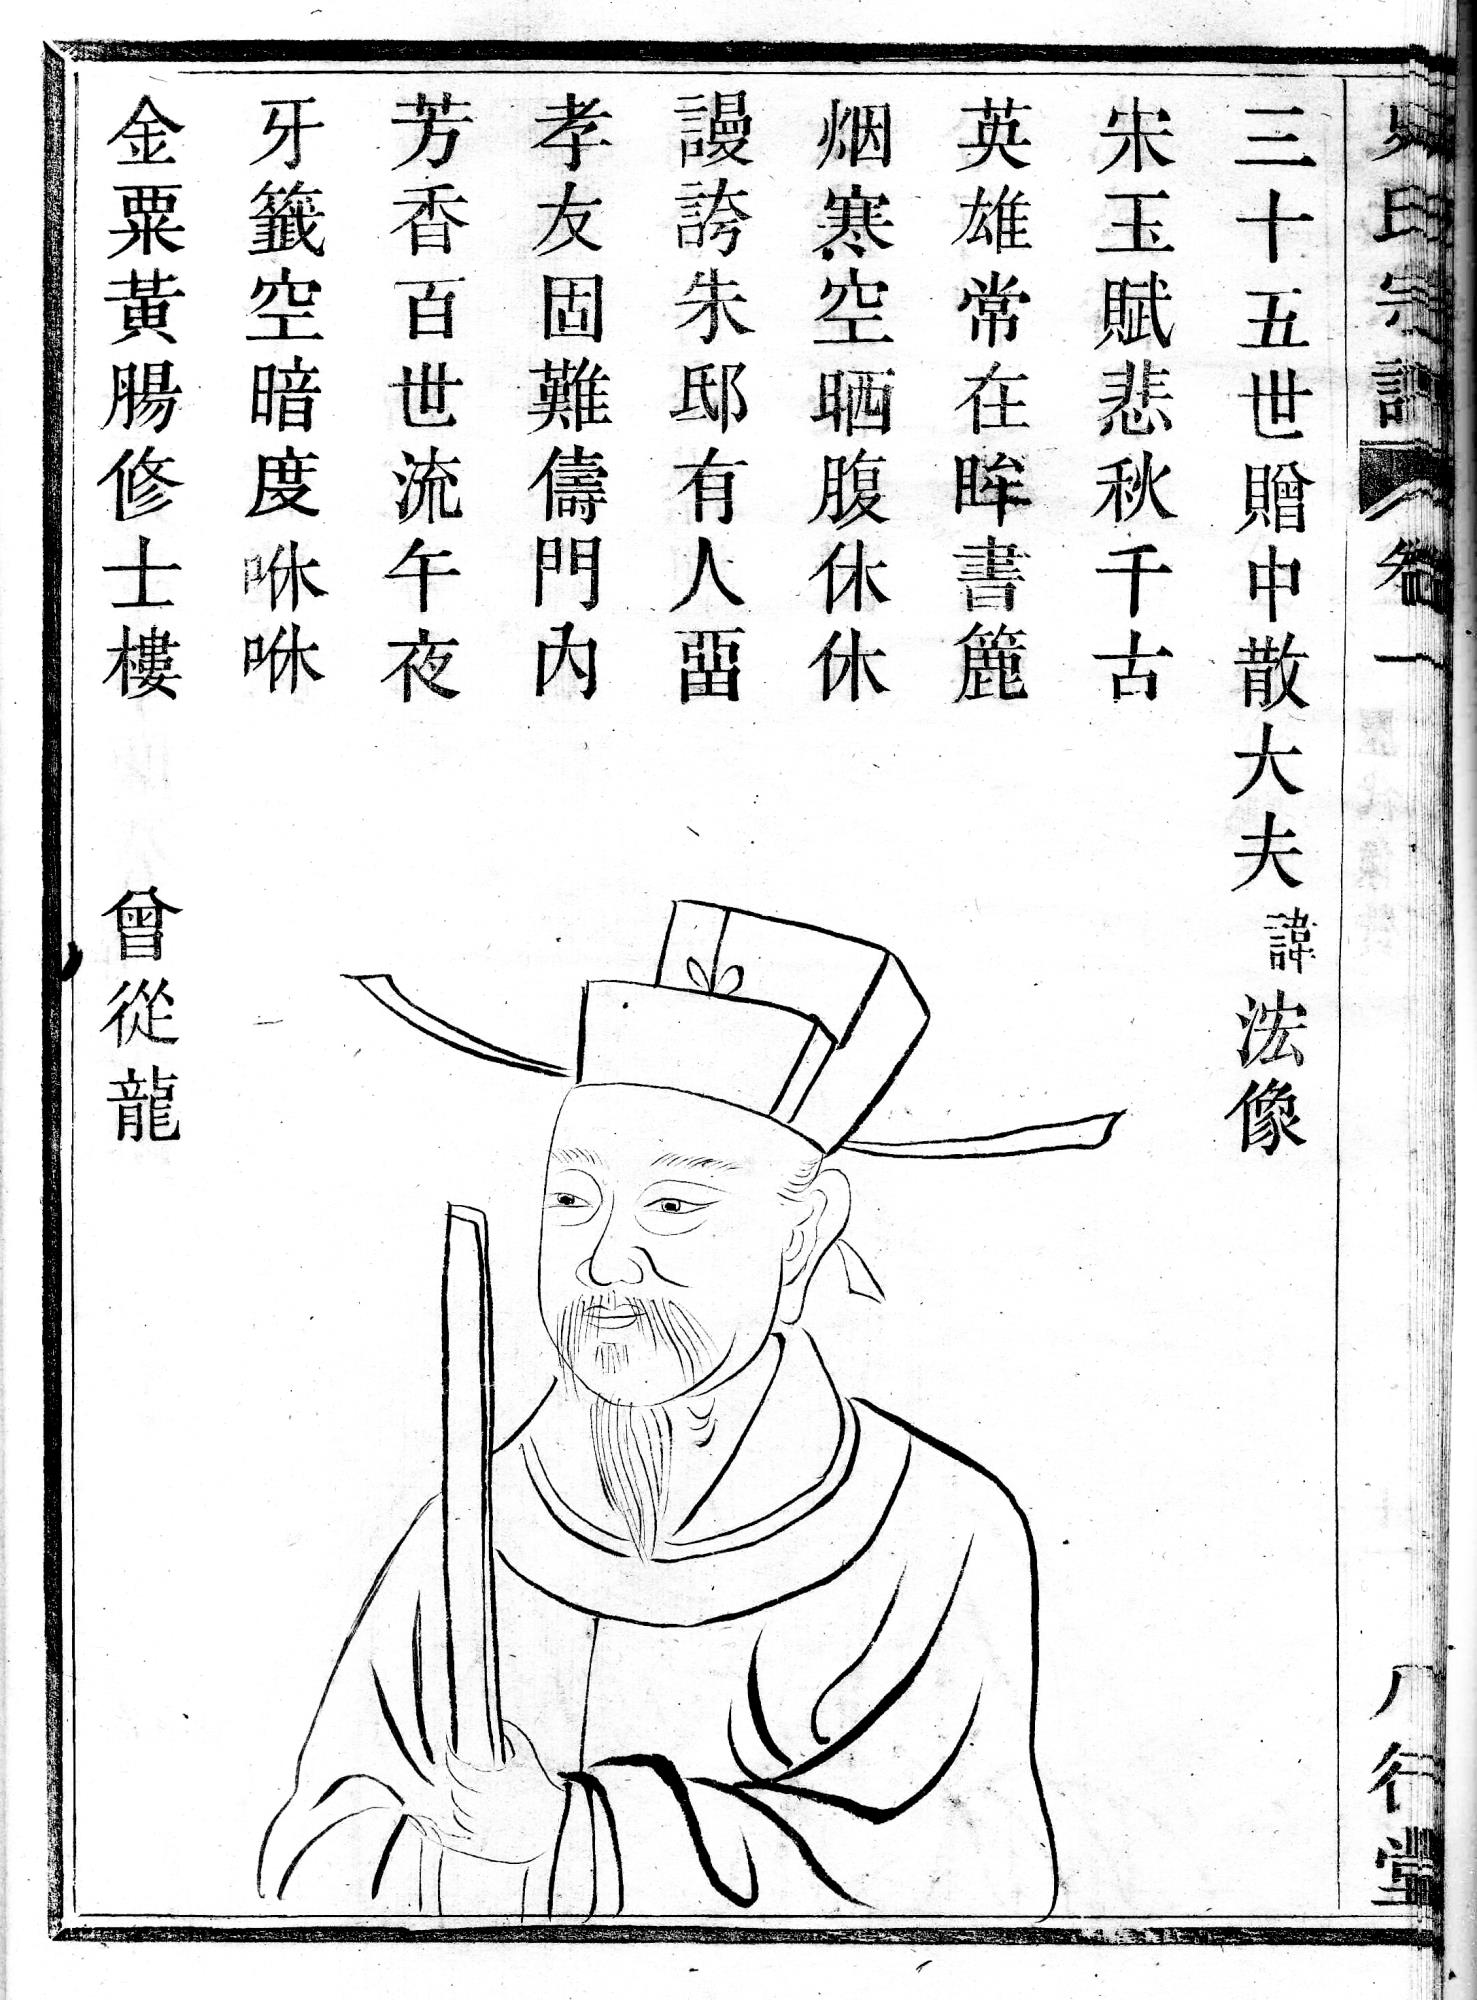 史氏宗譜
卷一
八行堂
三十五世贈中散大夫諱浤像
宋玉賦悲秋千古
英雄常在眸書簏
烟寒空晒腹休休
謾誇朱邸有人畱
孝友固難儔門內
芳香百世流午夜
牙籤空暗度咻咻
金粟黃腸修士樓
曾從龍